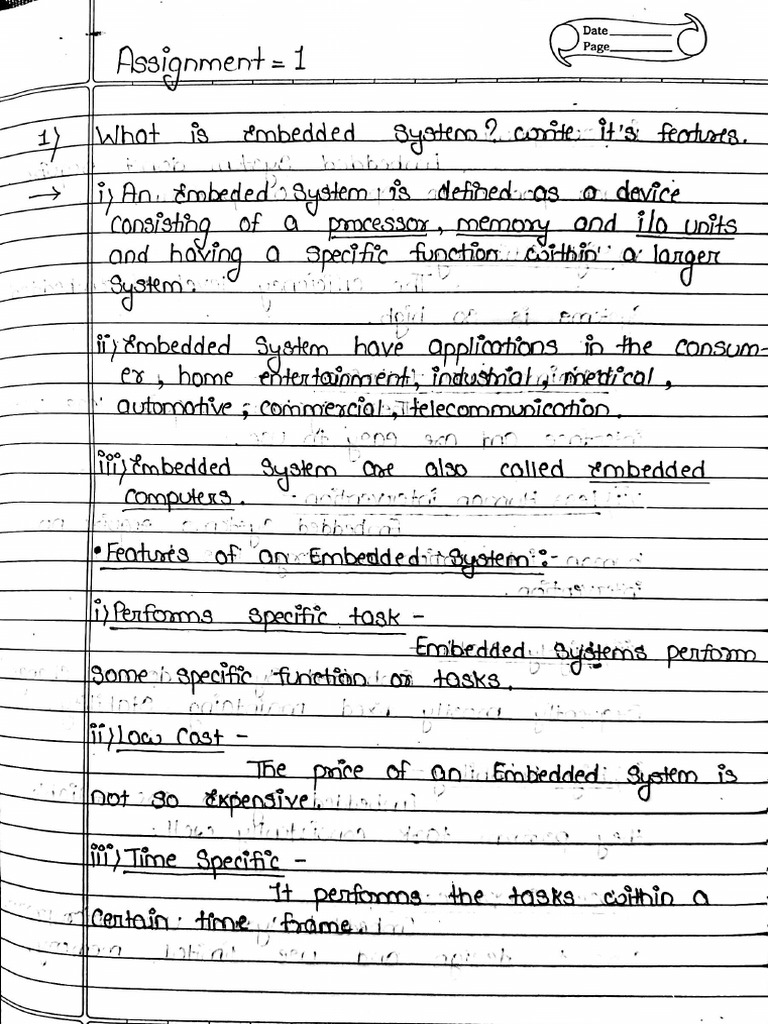 Date
Page
Assignment = 1
1) What is embedded system? write it's features.
→ i) An embeded system is defined as a device
consisting of a processor, memory and i/o units
and having a specific function within a larger
system.
ii) Embedded system have applications in the consum-
er, home entertainment, industrial, medical,
automotive, commercial, telecommunication.
iii) Embedded system are also called embedded
computers.
• Features of an Embedded System :-
i) Performs specific task -
Embedded systems perform
some specific function or tasks.
ii) Low Cost -
The price of an Embedded system is
not so expensive.
iii) Time Specific -
It performs the tasks within a
certain time frame.